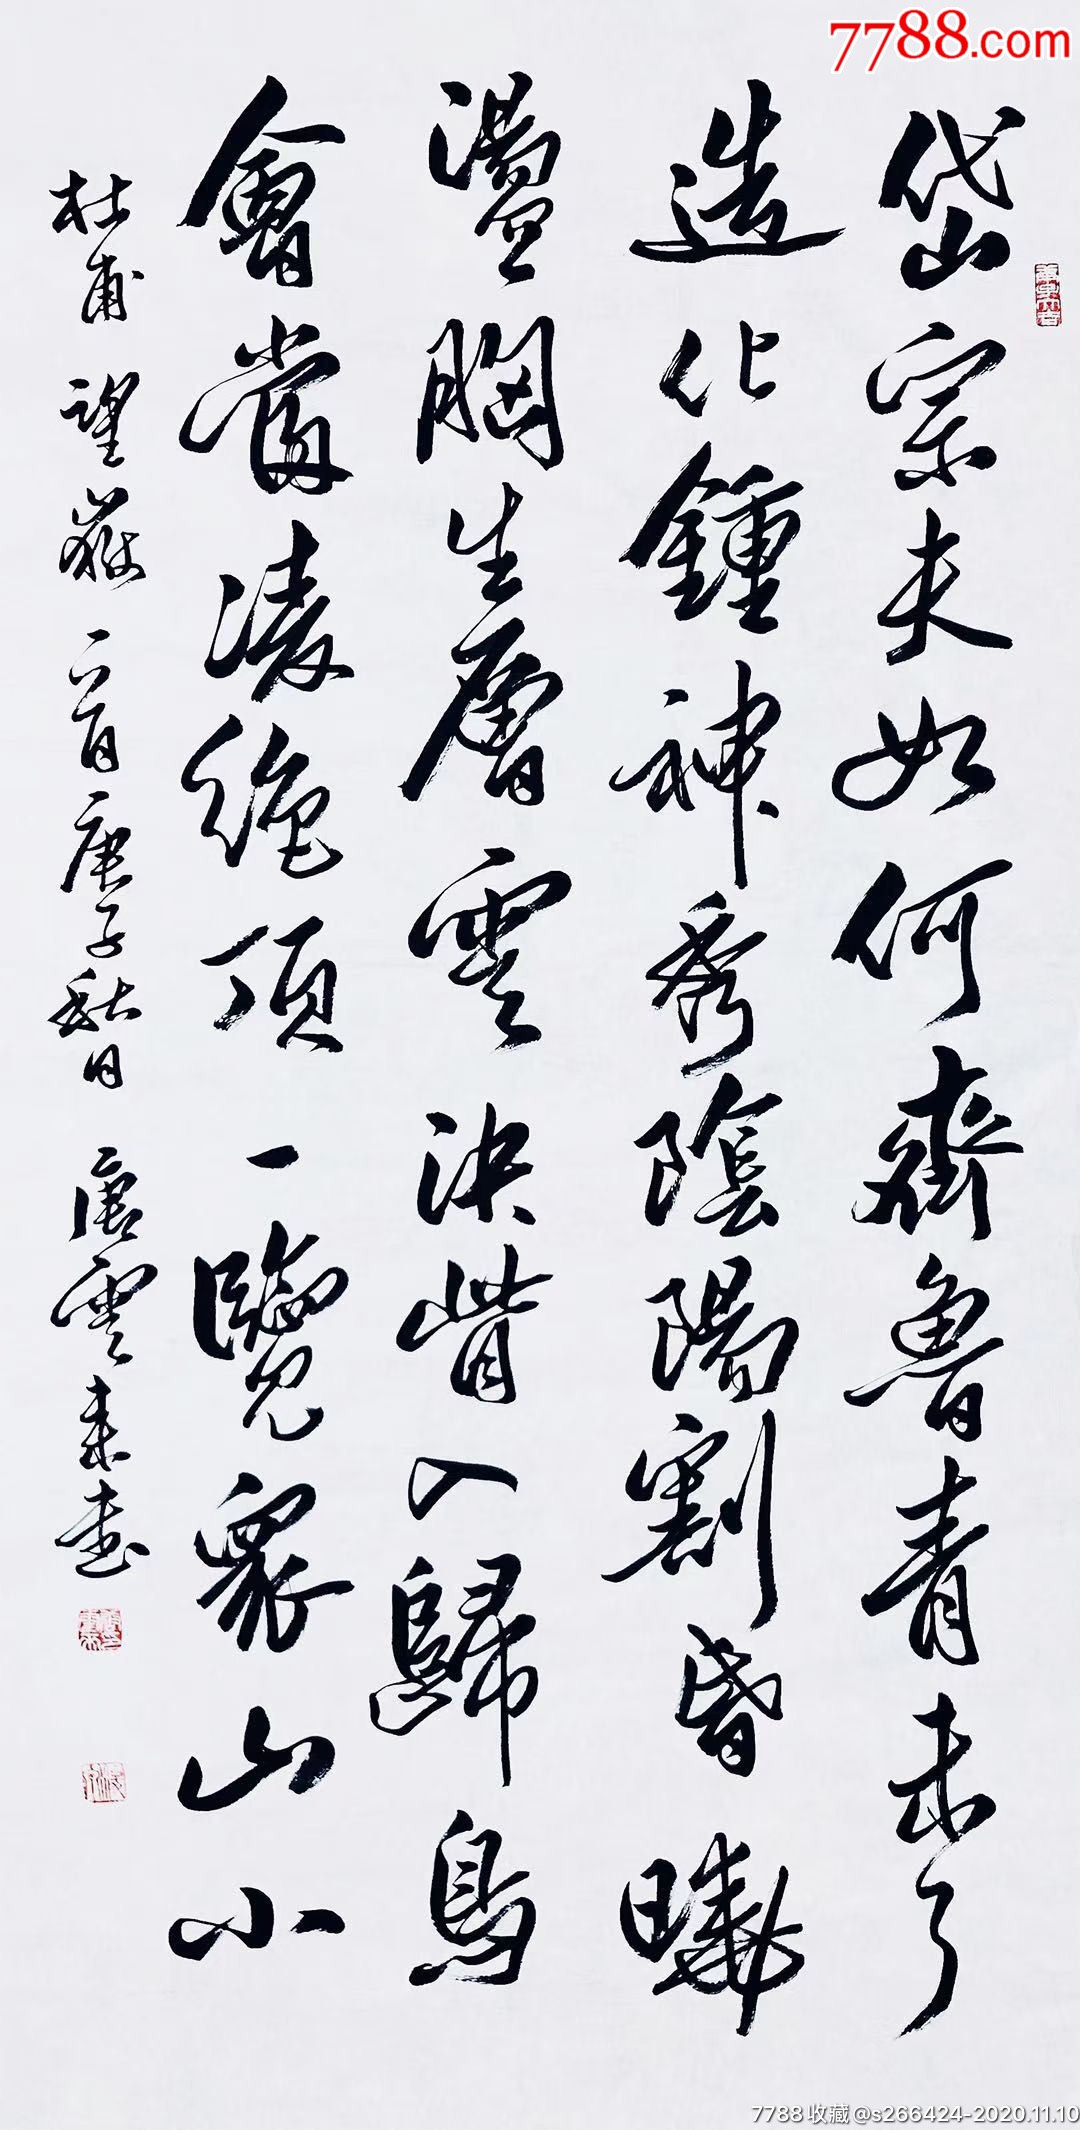 7788.com
岱宗夫如何齊魯青未了
造化鍾神秀陰陽割昏曉
盪胸生層雲決眥入歸鳥
會當凌絕頂一覽衆山小
杜甫望嶽一首庚子秋日唐雲來書
7788收藏@s266424-2020.11.10